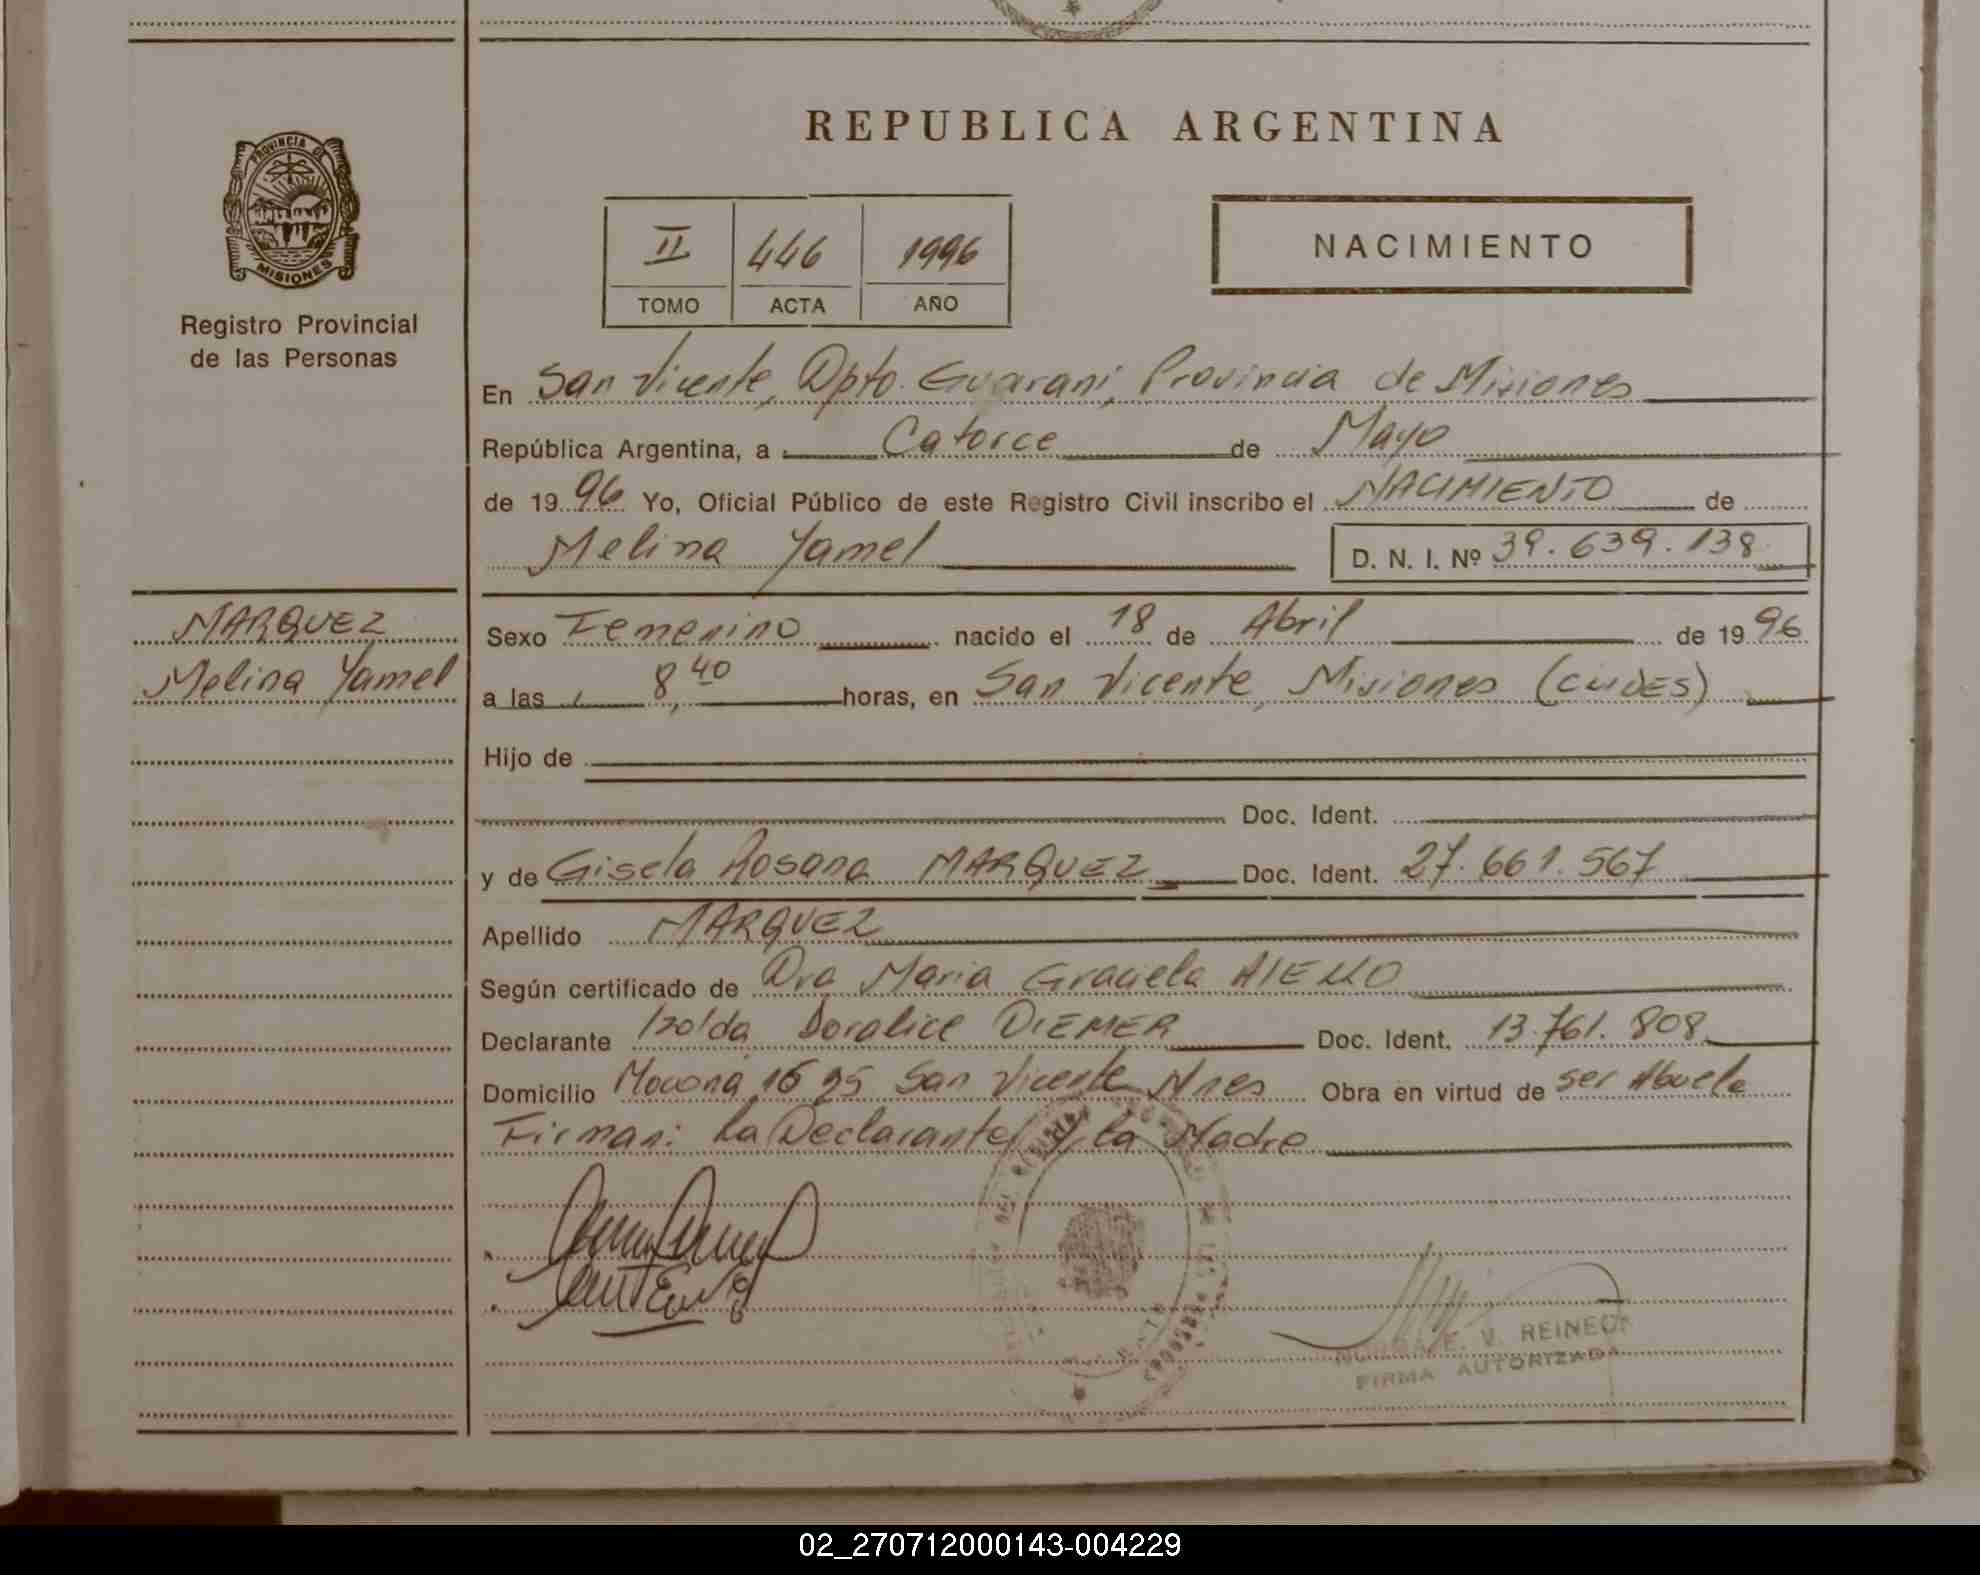 REPUBLICA ARGENTINA
PROVINCIA DE
MISIONES
Registro Provincial
de las Personas
II 446 1996
TOMO ACTA AÑO
NACIMIENTO
En San Vicente, Dpto. Guarani, Provincia de Misiones
República Argentina, a Catorce de Mayo
de 19 96 Yo, Oficial Público de este Registro Civil inscribo el NACIMIENTO de
Melina Yamel D. N. I. Nº 39.639.138
MARQUEZ
Melina Yamel
Sexo Femenino nacido el 18 de Abril de 19 96
a las 8,40 horas, en San Vicente, Misiones
Hijo de
Doc. Ident.
y de Gisela Rosana MARQUEZ Doc. Ident. 27.661.567
Apellido MARQUEZ
Según certificado de Dra Maria Graciela
Declarante Izolda Doralice DIEMER Doc. Ident. 13.761.808
Domicilio Mocona 1695 San Vicente Mnes Obra en virtud de ser Abuela
Firman: la Declarante y la Madre
E. V. REINECK
FIRMA AUTORIZADA
02_270712000143-004229